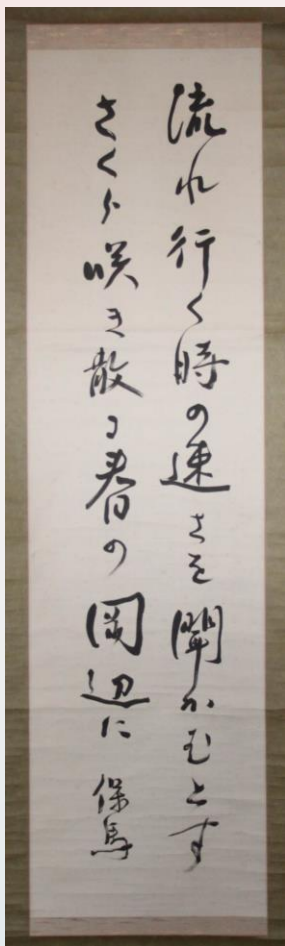 流れ行く時の速さを聞かむとす
さくら咲き散る春の岡辺に 保馬